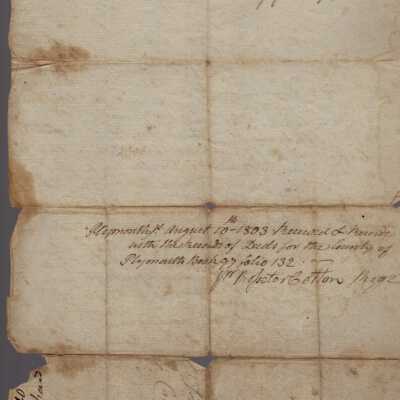 Plymouth ss August 10th 1803 Received &
with the Records of Deeds for the County of
Plymouth Book 97 folio 132
Rossiter Cotton Regr